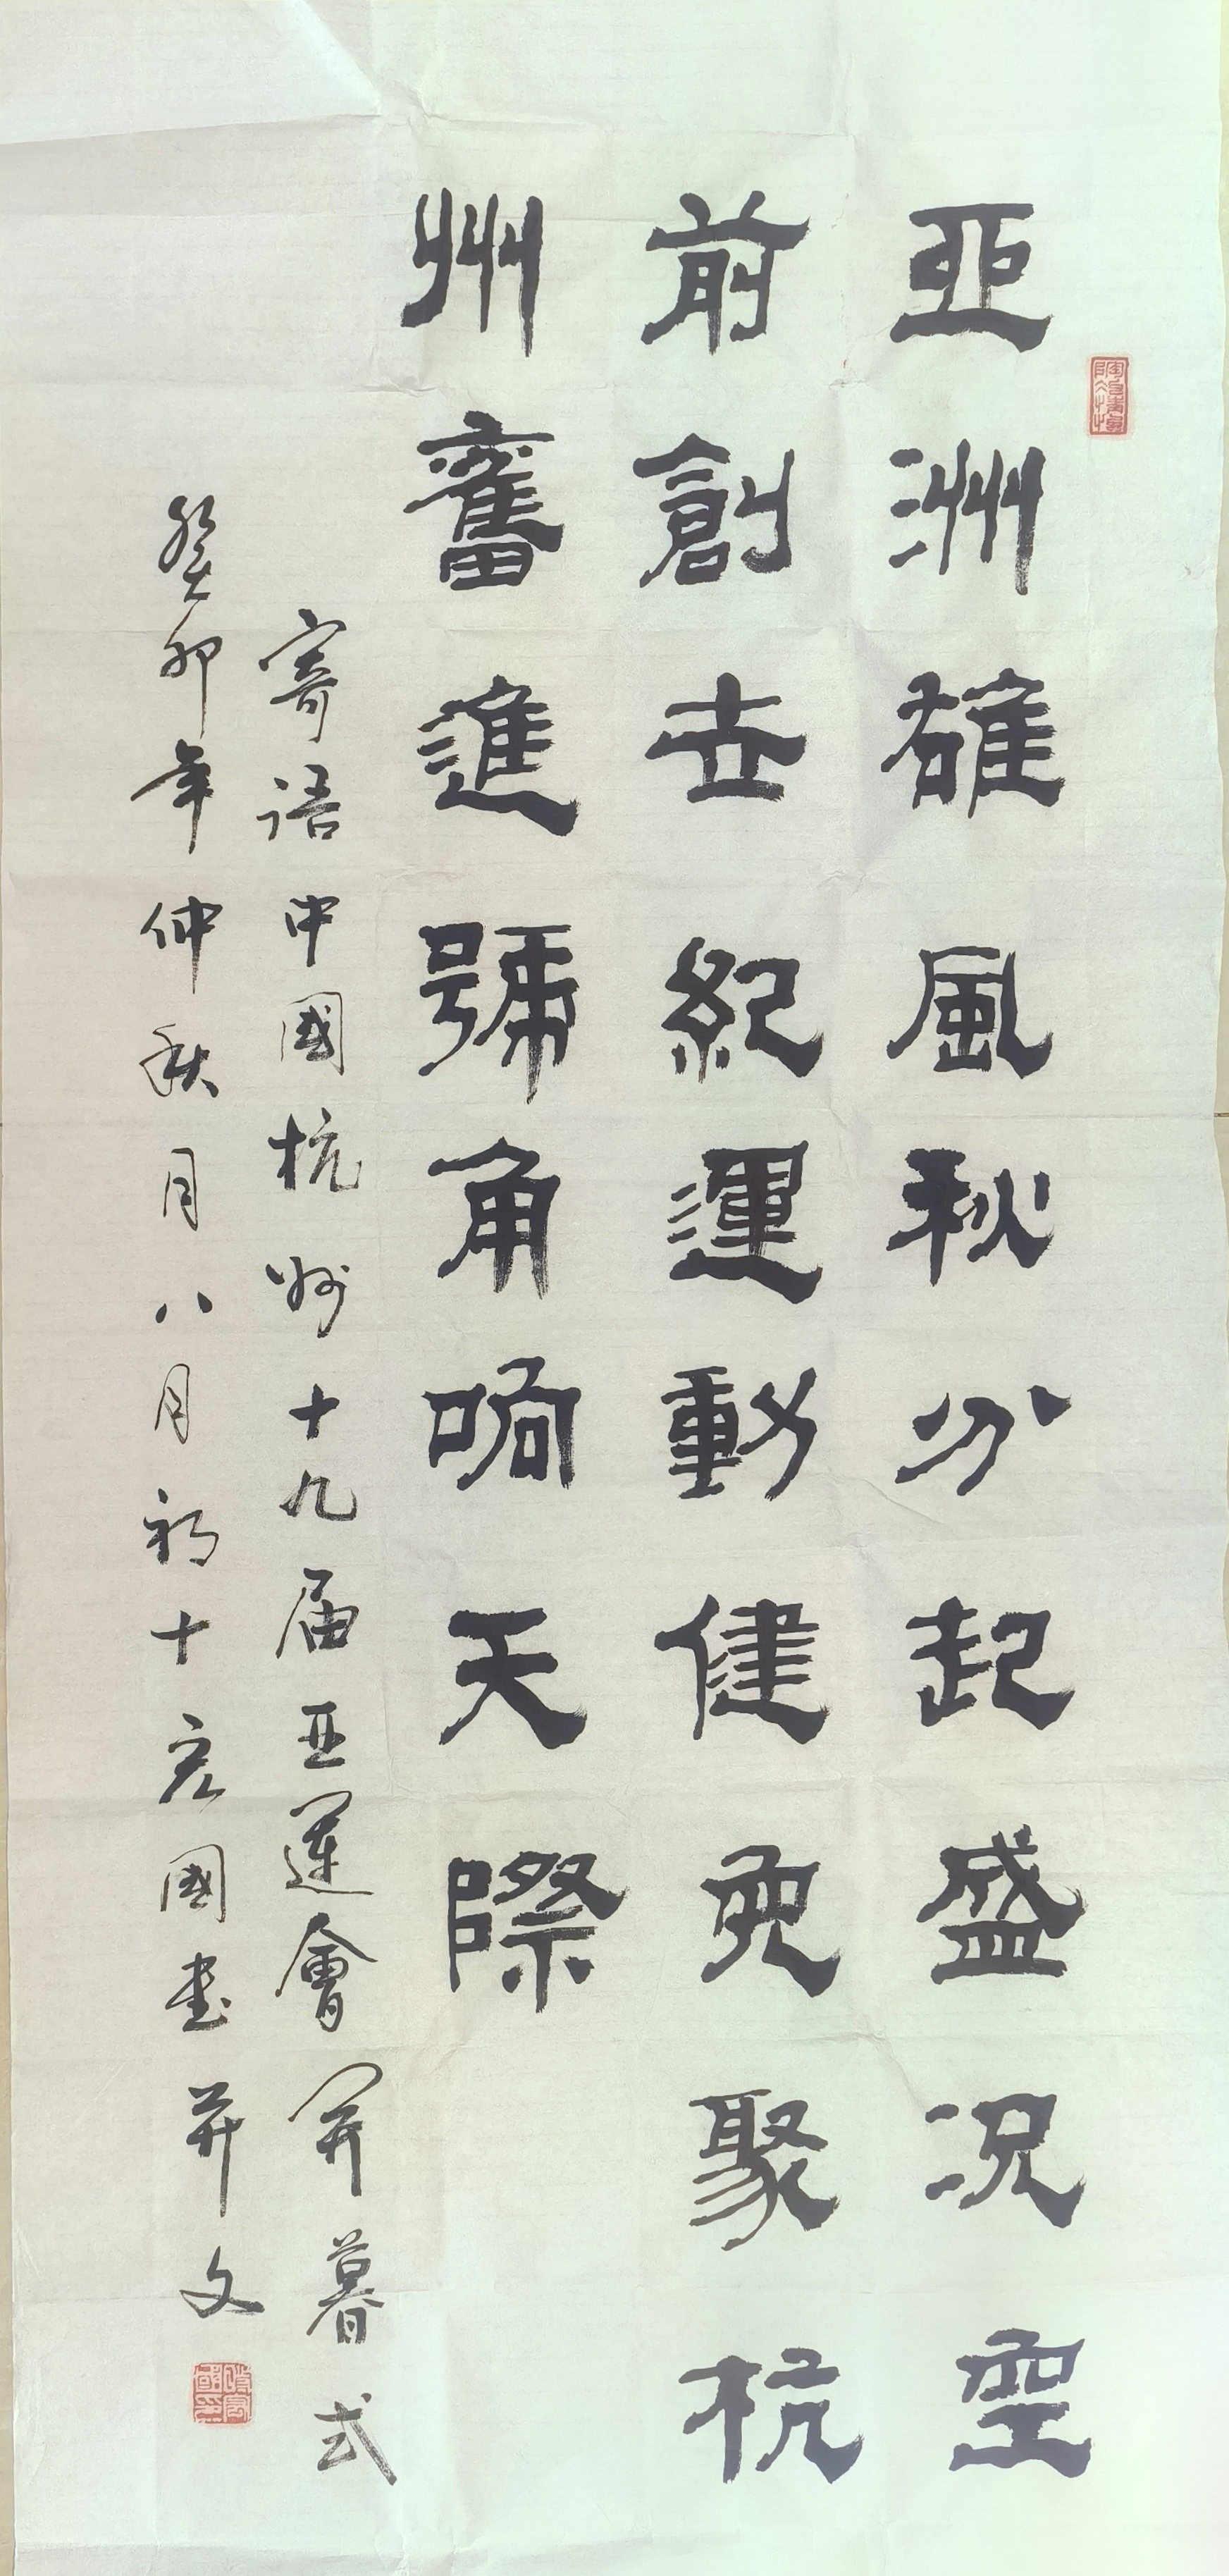 亞洲雄風秋分起盛況空
前創世紀運動健兒聚杭
州奮進號角响天際
寄语中國杭州十九届亚運會開暮式
癸卯年仲秋月八月初十宏國書并文